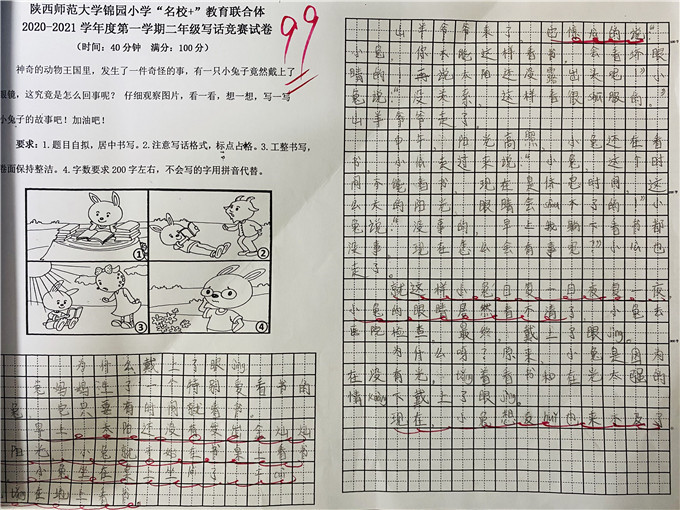 陕西师范大学锦园小学“名校+”教育联合体
2020-2021学年度第一学期二年级写话竞赛试卷
(时间:40分钟 满分:100分)
99
神奇的动物王国里,发生了一件奇怪的事,有一只小兔子竟然戴上了
眼镜,这究竟是怎么回事呢? 仔细观察图片,看一看,想一想,写一写
小兔子的故事吧!加油吧!
要求:1.题目自拟,居中书写。2.注意写话格式,标点占格。3.工整书写,
卷面保持整洁。4.字数要求200字左右,不会写的字用拼音代替。
① ②
③ ④
为什么戴上了眼jìng
兔妈妈生了一个特别爱看书的
兔,它只要有时间就看书。
早上,太阳还没有发出金灿灿
阳光,小兔就
小兔坐在
tǎng在地上看书
山羊爷爷来了,
小兔,你不能这样看书,会看坏眼
睛的!再说太阳还没露出头呢!”小
兔说:“没关系,这样看很舒服的。”
山羊爷爷走了。
中午,阳光高照,小兔还在看
书,小瓜走过来说:“小兔,这个时
间不能看书,现在是休息时间,这
么大的阳光,眼睛会 不了的!”小
兔说:“没事的,早上我躺下看书都
没事,现在怎么会有事呢?”小瓜也
走了。
就这样小兔日复一日夜复一夜,
小兔的眼睛居然看不清了,小兔去
医院检查,最终,戴上了眼jìng。
为什么呀?原来,小兔是因为
在没有光,tǎng着看书和在光太强的
情kuàng下戴上了眼jìng。
现在,小兔想 也来不及了